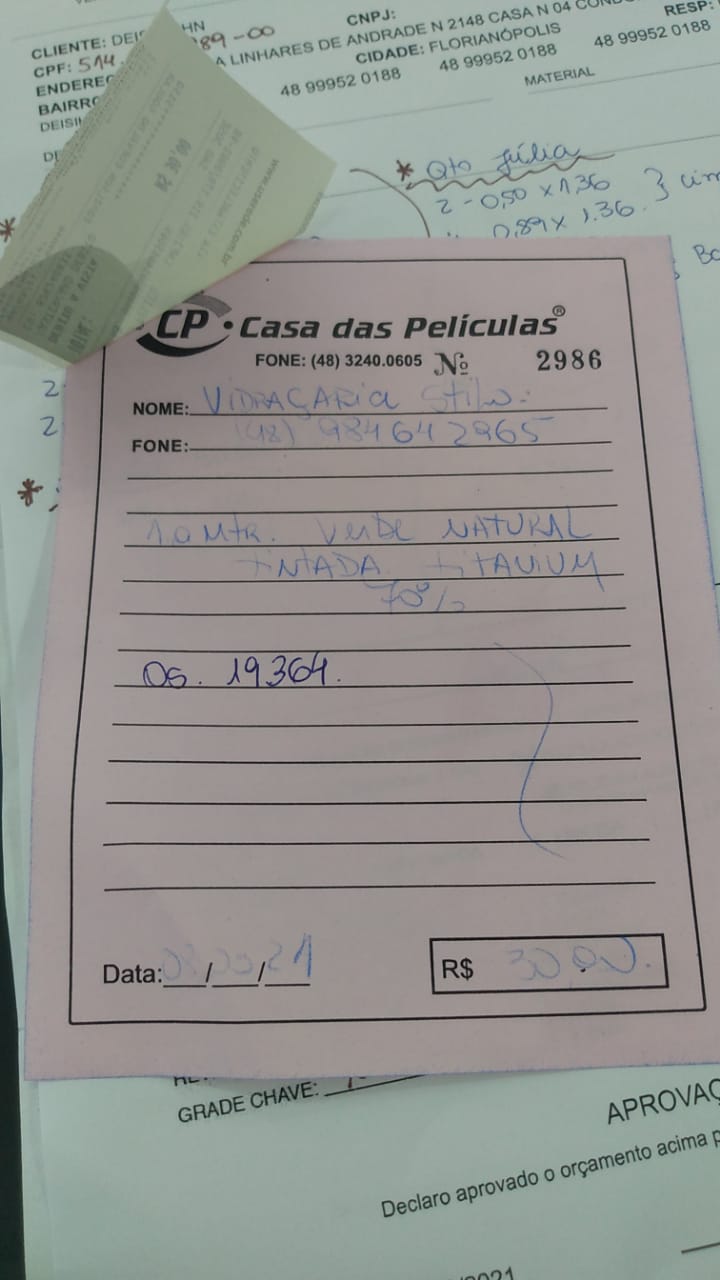 CNPJ:
CLIENTE: DEIS HN
CPF: 514. 89-00
A LINHARES DE ANDRADE N 2148 CASA N 04
RESP:
ENDEREÇ
CIDADE: FLORIANÓPOLIS
BAIRRO
48 99952 0188
48 99952 0188
48 99952 0188
MATERIAL
* Qto Júlia
2 - 0,50 x 1,36
0,89 x 1,36.
CP • Casa das Películas®
FONE: (48) 3240.0605 Nº 2986
NOME: VIDRAÇARIA Stilo:
FONE: (48) 984642965
1.0 Mtr. Verde NATURAL
TINTADA TITANIUM
70%
OS. 19364.
Data: / /21
R$ 30,00.
GRADE CHAVE:
APROVAÇ
Declaro aprovado o orçamento acima p
/2021